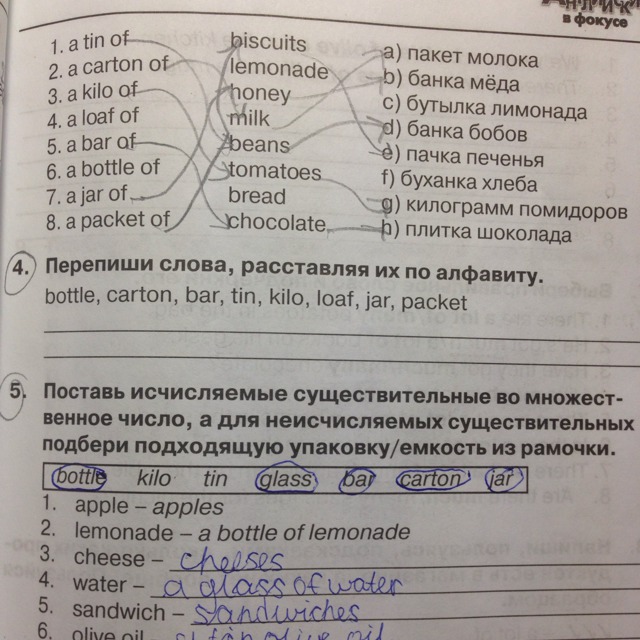 в фокусе
1. a tin of biscuits a) пакет молока
2. a carton of lemonade b) банка мёда
3. a kilo of honey c) бутылка лимонада
4. a loaf of milk d) банка бобов
5. a bar of beans e) пачка печенья
6. a bottle of tomatoes f) буханка хлеба
7. a jar of bread g) килограмм помидоров
8. a packet of chocolate h) плитка шоколада
4. Перепиши слова, расставляя их по алфавиту.
bottle, carton, bar, tin, kilo, loaf, jar, packet
5. Поставь исчисляемые существительные во множест-
венное число, а для неисчисляемых существительных
подбери подходящую упаковку/емкость из рамочки.
bottle kilo tin glass bar carton jar
1. apple – apples
2. lemonade – a bottle of lemonade
3. cheese – cheeses
4. water – a glass of water
5. sandwich – sandwiches
6. olive oil